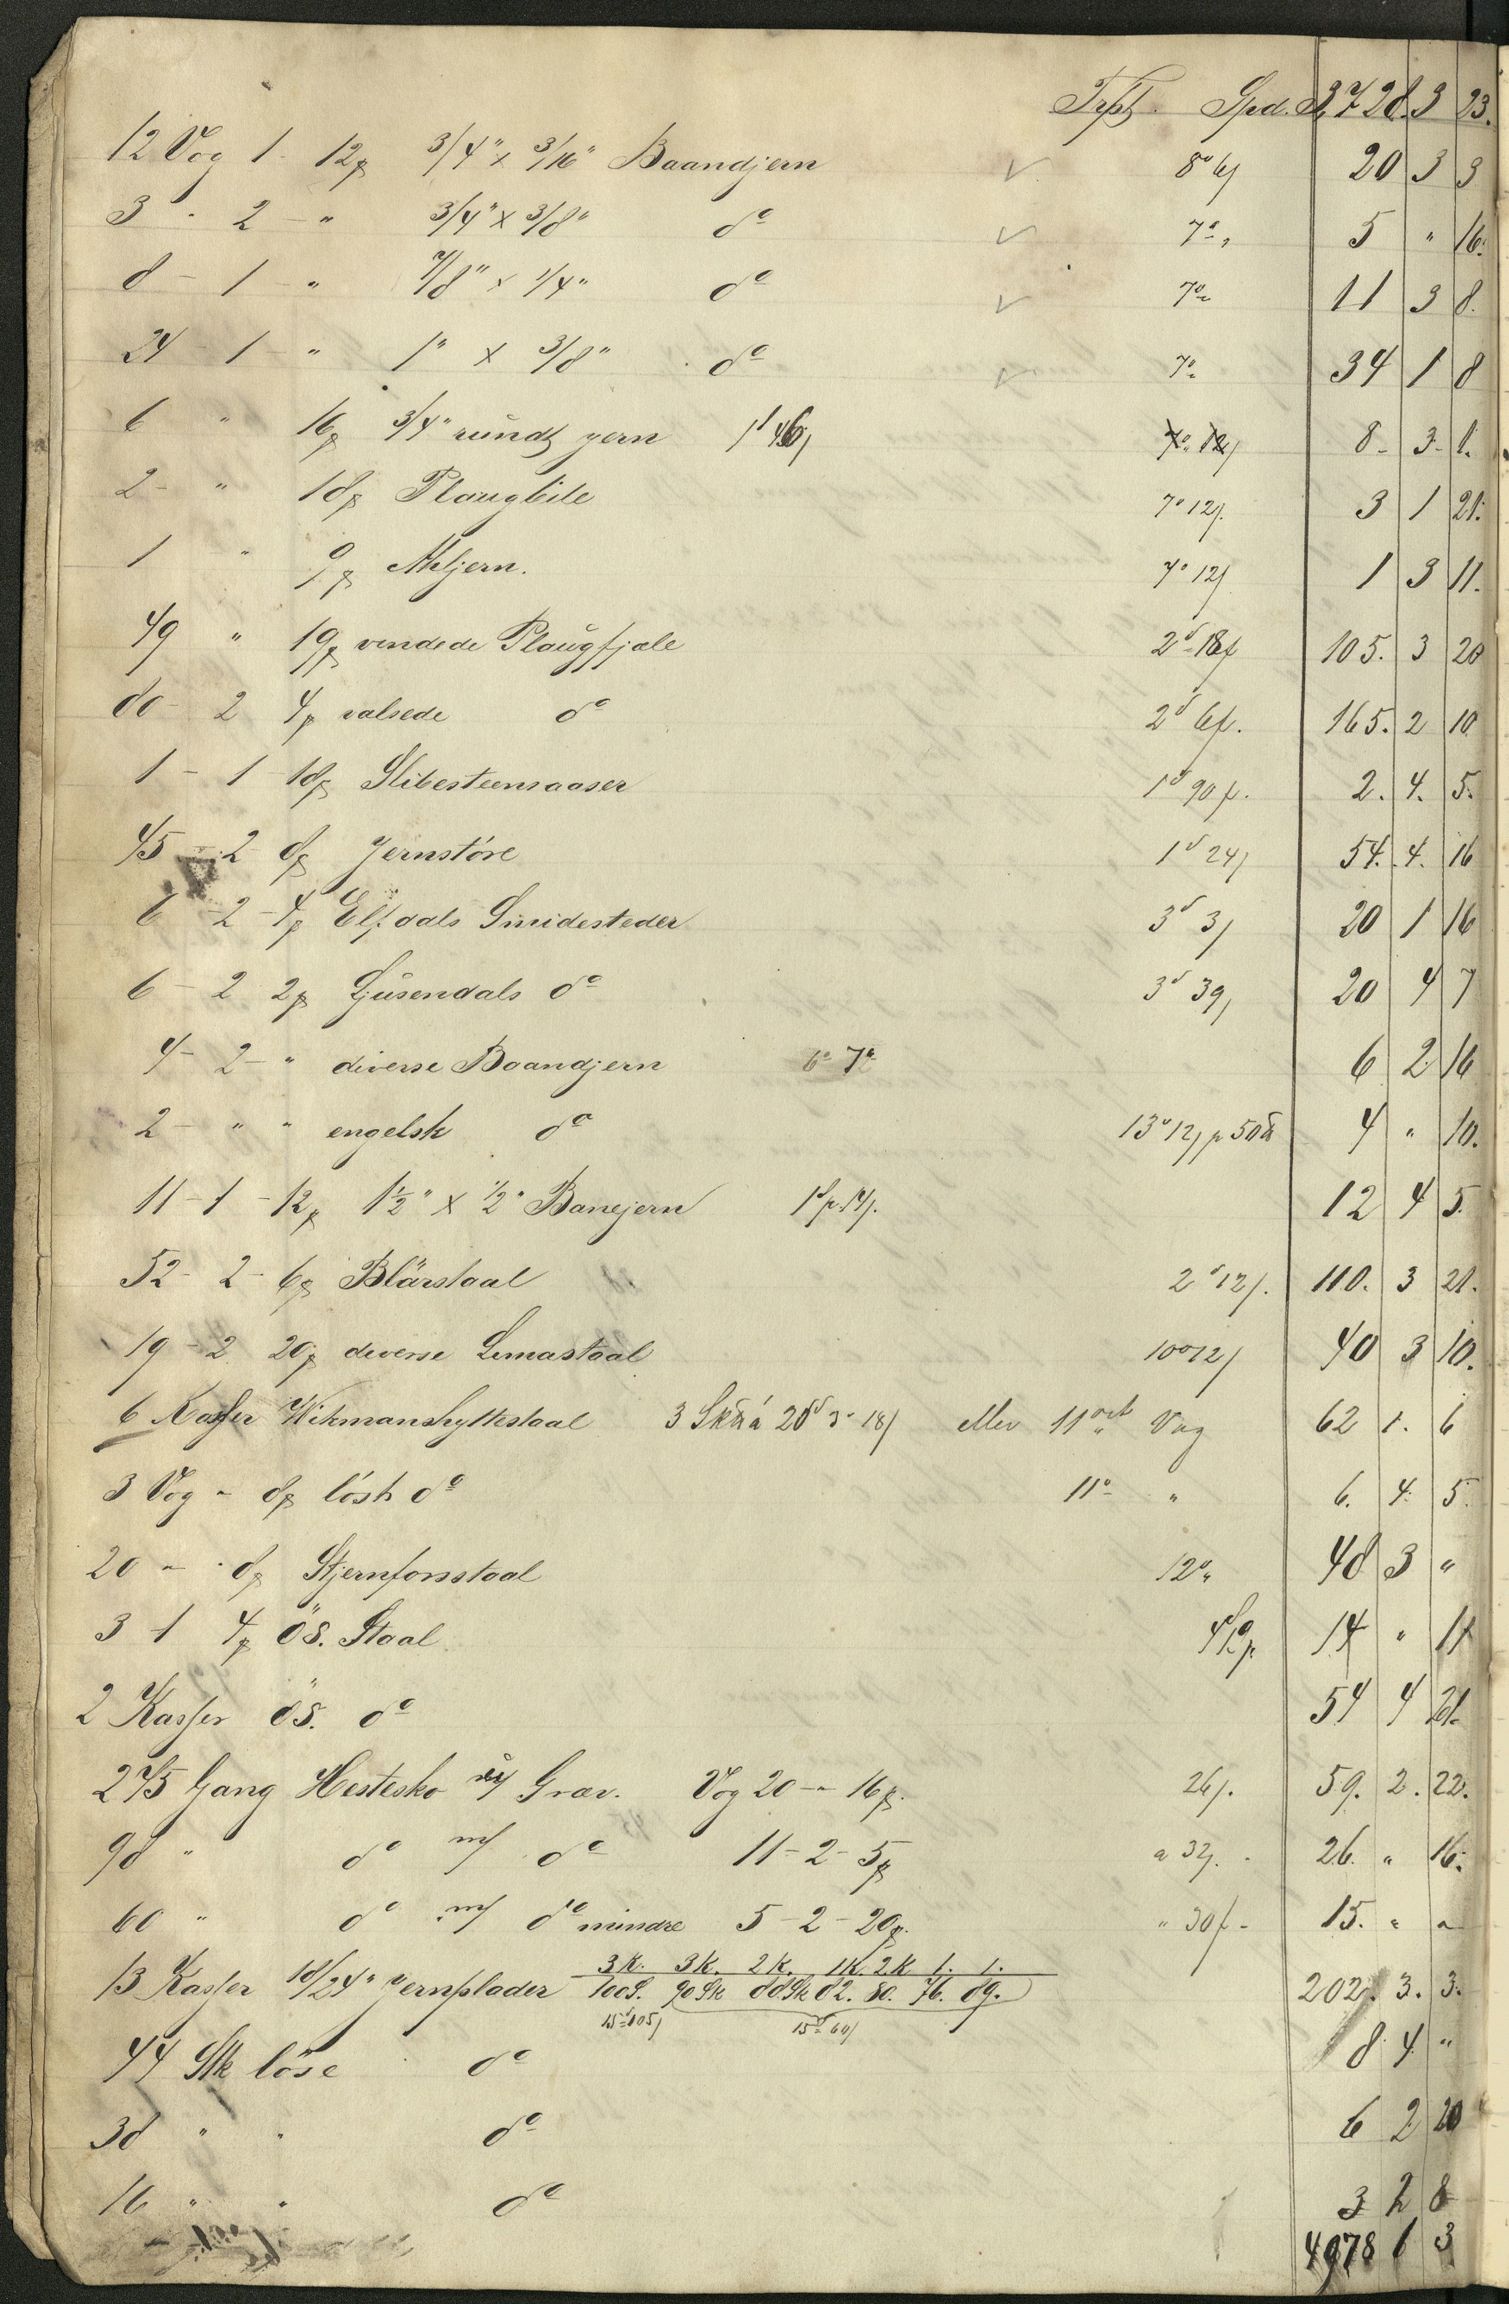 Trpt. Spd. 3728. 3 23.
12 Vog 1 - 12 ℔ 3/4" x 3/16" Baandjern ✓ 8° 6/ 20 3 3
3 - 2 - " 3/4" x 3/8" d° ✓ 7° " 5 " 16.
8 - 1 - " 7/8" x 1/4" d° ✓ 7° " 11 3 8.
24 - 1 - " 1" x 3/8" d° ✓ 7° " 34 1 8
6 " 16 ℔ 3/4" rundt jern 8 - 3 - 1.
2 - " 18 ℔ Plougbile 7° 12/. 3 1 21.
1 " 9 ℔ 7° 12/ 1 3 11.
49 " 19 ℔ vendede Plougfjæle 2 d 18/ 105. 3 20
80 - 2 4 ℔ valsede d° 2 d 6/. 165. 2 10
1 - 1 18 ℔ Slibesteensaaser 1 d 90/. 2. 4. 5.
45 - 2 8 ℔ Jernstöre 1 d 24/ 54. 4. 16
6 - 2 - 4 ℔ Elfdals Smidesteder 3 d 3/ 20 1 16
6 - 2 2 ℔ Ljusendals d° 3 d 39/ 20 4 7
4 - 2 - " diverse Baandjern 6° 7° 6 2 16
2 - " " engelsk d° 13° 12/ pr 50 ℔ 4 " 10.
11 - 1 - 12 ℔ 1½" x ½" Banejern 12 4 5.
52 - 2 - 6 ℔ Blärstaal 2 d 12/. 110. 3 21.
19 - 2 20 ℔ diverse Lemastaal 10° 12/ 40 3 10.
6 Kasser Wikmanshyttestaal 3 Sk℔ á 20 d 3° 18/ eller 11 ort " Vog 62 1. 6
3 Vog - 8 ℔ löst d° 11° " 6. 4. 5.
20 - - 8 ℔ Stjernforsstaal 12° " 48 3 "
3 - 1 4 ℔ ÖS. Staal 14 " 11
2 Kasser ÖS. d° 54 4 21.
245 Gang Hestesko u/ Græv. Vog 20 - " 16 ℔. 26/. 59. 2. 22.
98 " d° m/ d° 11 - 2 - 5 ℔ a 32/. 26. " 16.
60 " d° m/ d° mindre 5 - 2 - 20 ℔. " 30/ - 15. " "
13 Kasser 18/24" Jernplader 3 K. 3 K. 2 K. 1 K. 2 K 1. 1. 202. 3. 3.
100 S. 90 Stk 88 Stk 82. 80. 76. 89.
15 d 105/ 15 d 60/
44 Stk löse d° 8 4 "
38 " " d° 6 2 20
16 " " d° 3 2 8
4978 1 3